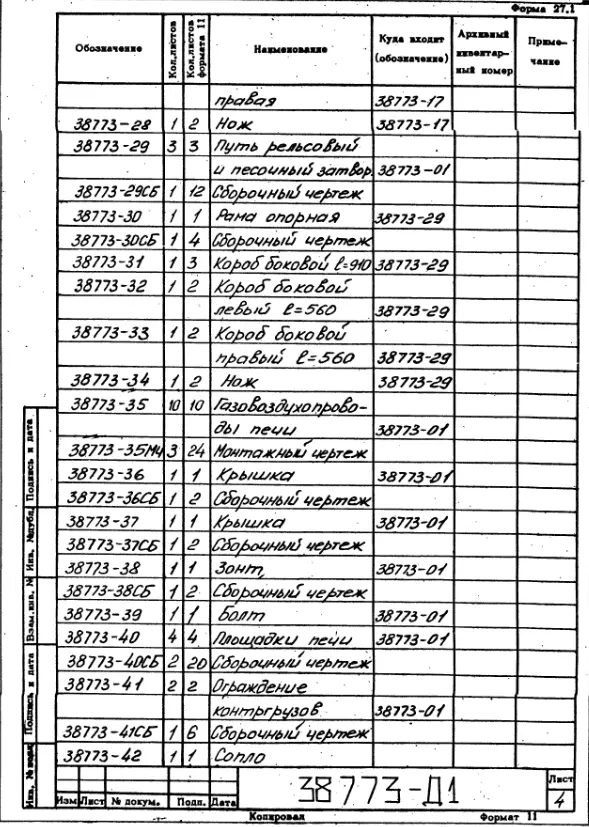 Форма 27.1
Обозначение Кол.листов Кол.листов формата 11 Наименование Куда входит (обозначение) Архивный инвентарный номер Примечание
правая 38773-17
38773-28 1 2 Нож 38773-17
38773-29 3 3 Путь рельсовый
и песочный затвор 38773-01
38773-29СБ 1 12 Сборочный чертеж
38773-30 1 1 Рама опорная 38773-29
38773-30СБ 1 4 Сборочный чертеж
38773-31 1 3 Короб боковой ℓ=910 38773-29
38773-32 1 2 Короб боковой
левый ℓ=560 38773-29
38773-33 1 2 Короб боковой
правый ℓ=560 38773-29
38773-34 1 2 Нож 38773-29
38773-35 10 10 Газовоздухопрово-
ды печи 38773-01
38773-35МЧ 3 24 Монтажный чертеж
38773-36 1 1 Крышка 38773-01
38773-36СБ 1 2 Сборочный чертеж
38773-37 1 1 Крышка 38773-01
38773-37СБ 1 2 Сборочный чертеж
38773-38 1 1 Зонт 38773-01
38773-38СБ 1 2 Сборочный чертеж
38773-39 1 1 Болт 38773-01
38773-40 4 4 Площадки печи 38773-01
38773-40СБ 2 20 Сборочный чертеж
38773-41 2 2 Ограждение
контргрузов 38773-01
38773-41СБ 1 6 Сборочный чертеж
38773-42 1 1 Сопло
Подпись и дата
Инв. №дубл.
Взам.инв. №
Подпись и дата
Инв. №подл.
Изм Лист № докум. Подп. Дата
38773-Д1
Лист
4
Копировал Формат 11